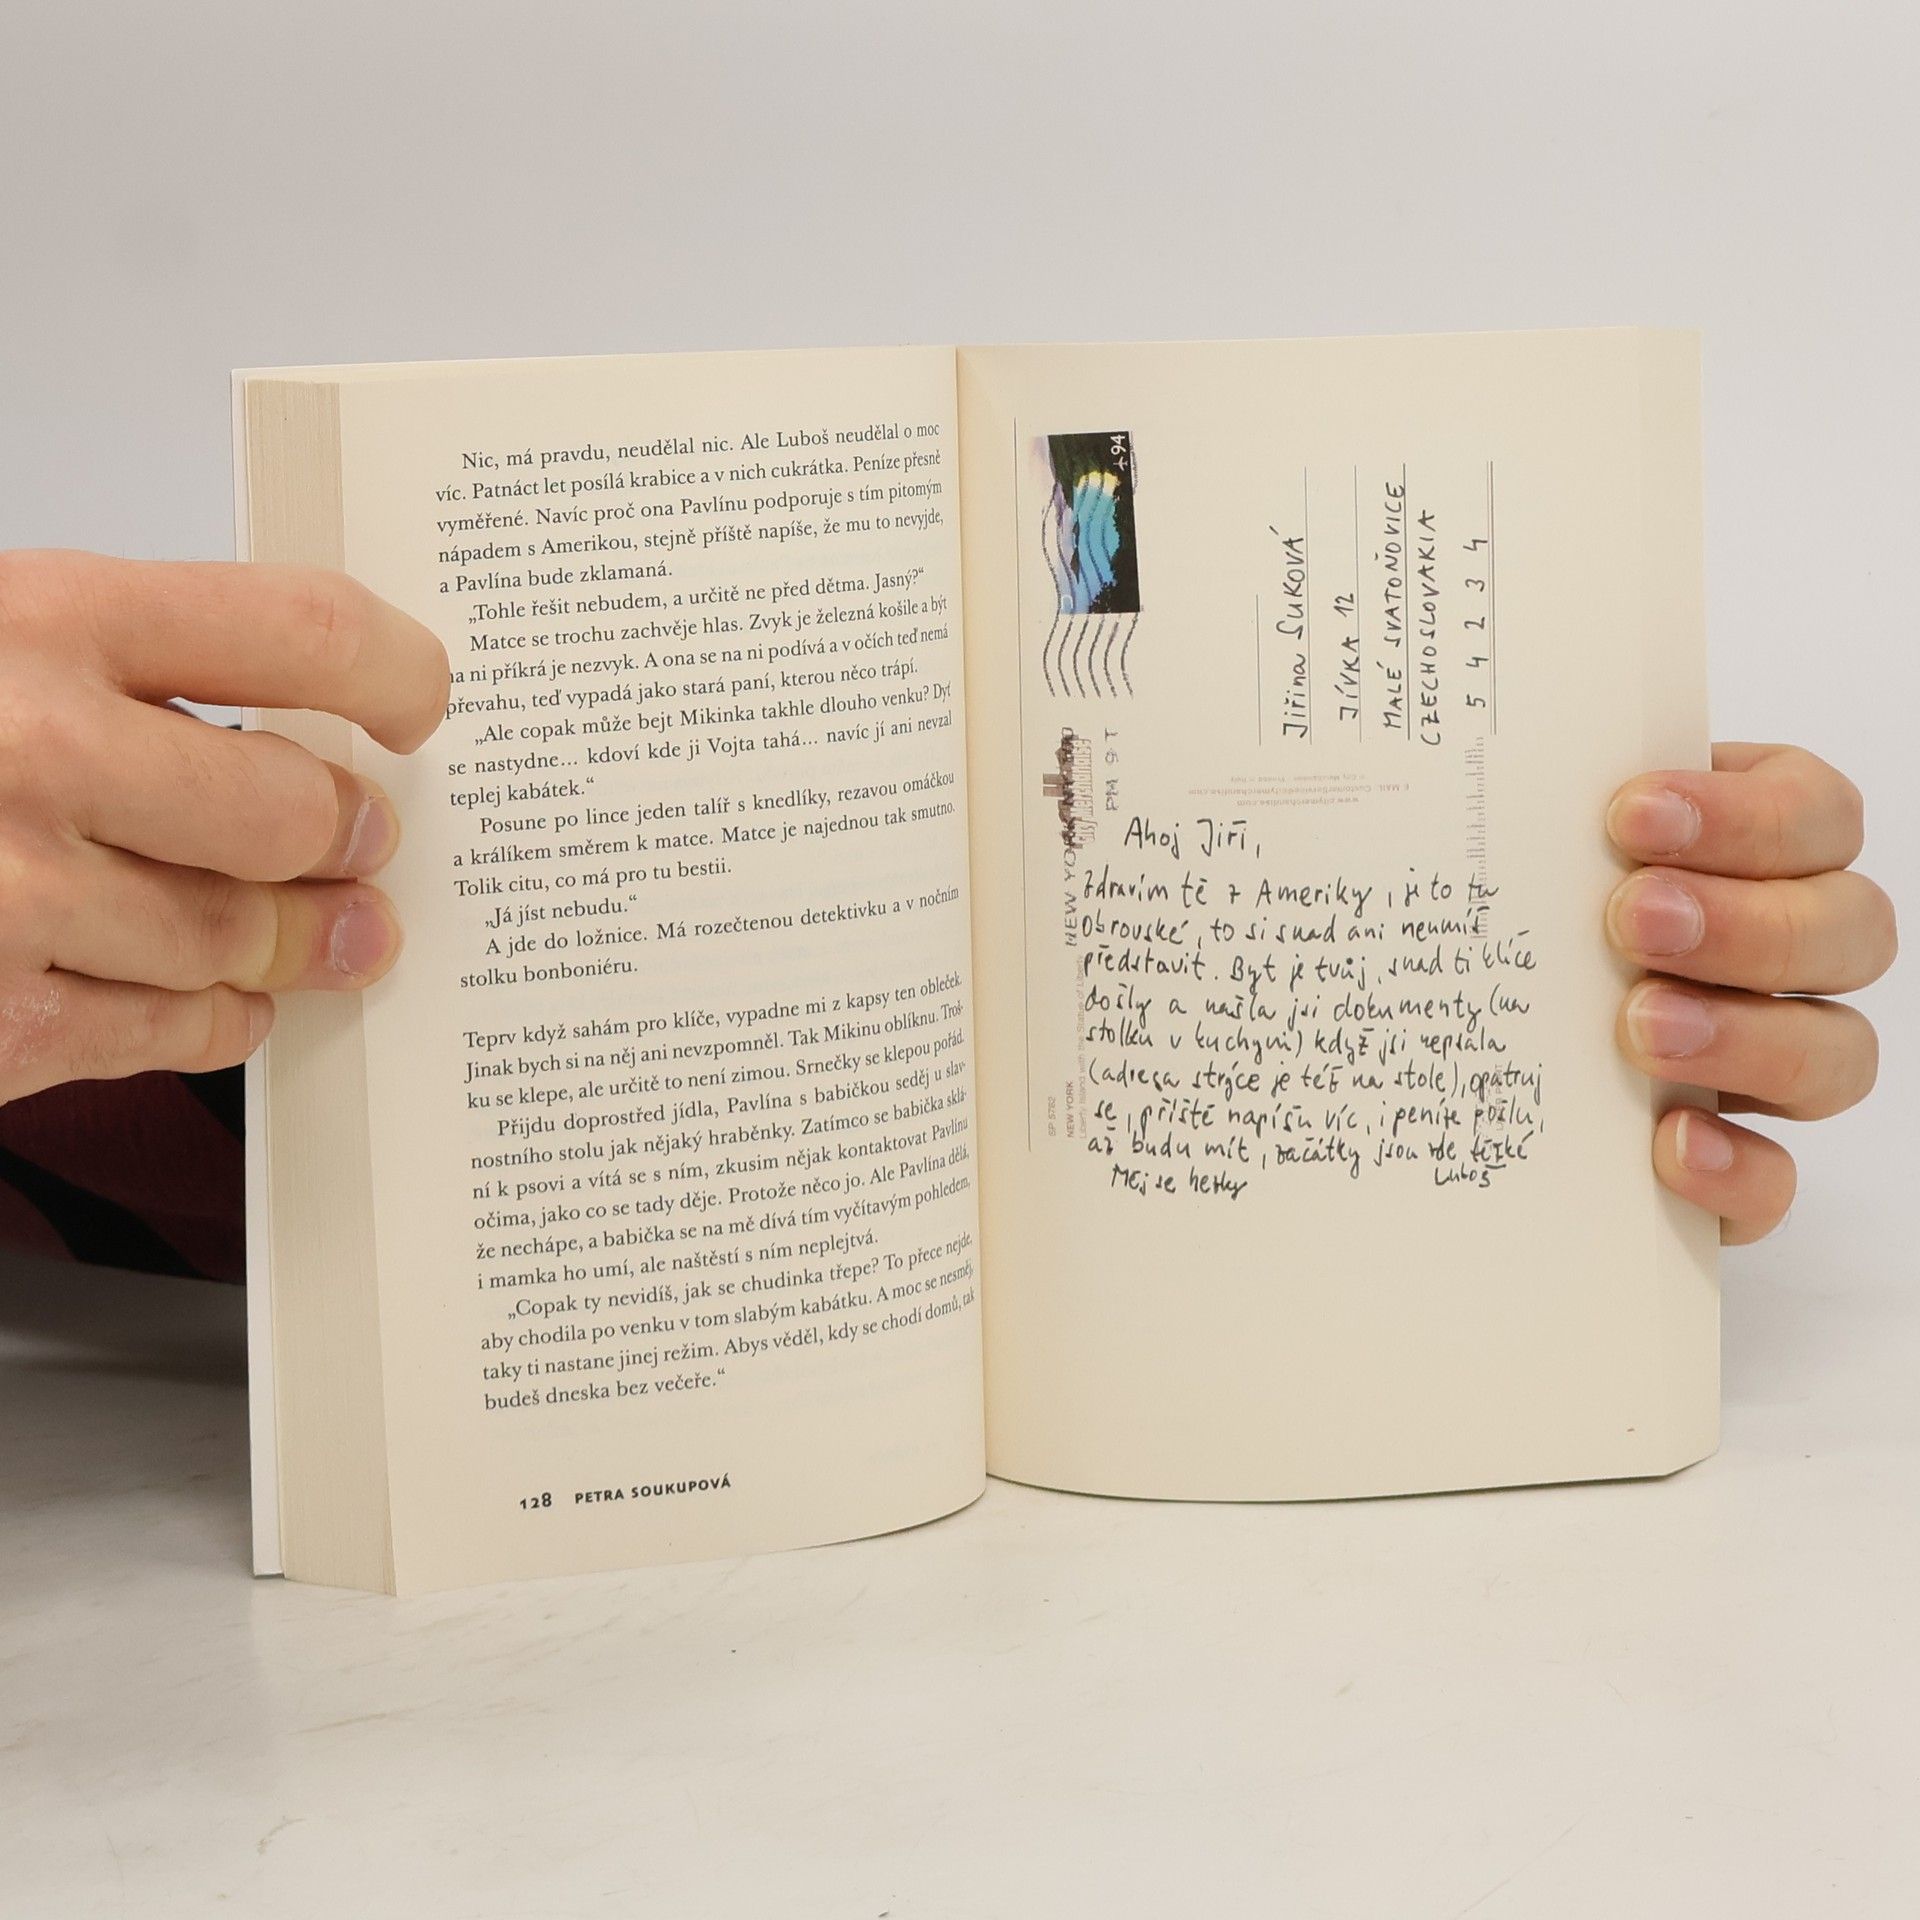 Nic, má pravdu, neudělal nic. Ale Luboš neudělal o moc
víc. Patnáct let posílá krabice a v nich cukrátka. Peníze přesně
vyměřené. Navíc proč ona Pavlínu podporuje s tím pitomým
nápadem s Amerikou, stejně příště napíše, že mu to nevyjde,
a Pavlína bude zklamaná.
„Tohle řešit nebudem, a určitě ne před dětma. Jasný?“
Matce se trochu zachvěje hlas. Zvyk je železná košile a být
na ni příkrá je nezvyk. A ona se na ni podívá a v očích teď nemá
převahu, teď vypadá jako stará paní, kterou něco trápí.
„Ale copak může bejt Mikinka takhle dlouho venku? Dyť
se nastydne… kdoví kde ji Vojta tahá… navíc jí ani nevzal
teplej kabátek.“
Posune po lince jeden talíř s knedlíky, rezavou omáčkou
a králíkem směrem k matce. Matce je najednou tak smutno.
Tolik citu, co má pro tu bestii.
„Já jíst nebudu.“
A jde do ložnice. Má rozečtenou detektivku a v nočním
stolku bonboniéru.
Teprv když sahám pro klíče, vypadne mi z kapsy ten obleček.
Jinak bych si na něj ani nevzpomněl. Tak Mikinu oblíknu. Troš-
ku se klepe, ale určitě to není zimou. Srnečky se klepou pořád.
Přijdu doprostřed jídla, Pavlína s babičkou seděj u slav-
nostního stolu jak nějaký hraběnky. Zatímco se babička sklá-
ní k psovi a vítá se s ním, zkusim nějak kontaktovat Pavlínu
očima, jako co se tady děje. Protože něco jo. Ale Pavlína dělá,
že nechápe, a babička se na mě dívá tím vyčítavým pohledem,
i mamka ho umí, ale naštěstí s ním neplejtvá.
„Copak ty nevidíš, jak se chudinka třepe? To přece nejde,
aby chodila po venku v tom slabým kabátku. A moc se nesměj,
taky ti nastane jinej režim. Abys věděl, kdy se chodí domů, tak
budeš dneska bez večeře.“
128 PETRA SOUKUPOVÁ
94
NEW YORK
PM 9 T
Jiřina SUKOVÁ
JÍVKA 12
MALÉ SVATOŇOVICE
CZECHOSLOVAKIA
5 4 2 3 4
www.citymerchandise.com
SP 5782
NEW YORK
Ahoj Jiří,
zdravím tě z Ameriky, je to tu
obrovské, to si snad ani neumíš
představit. Byt je tvůj, snad ti klíče
došly a našla jsi dokumenty (na
stolku v kuchyni) když jsi nepsala
(adresa strýce je též na stole), opatruj
se, příště napíšu víc, i peníze pošlu,
až budu mít, začátky jsou zde těžké
Měj se hezky Luboš